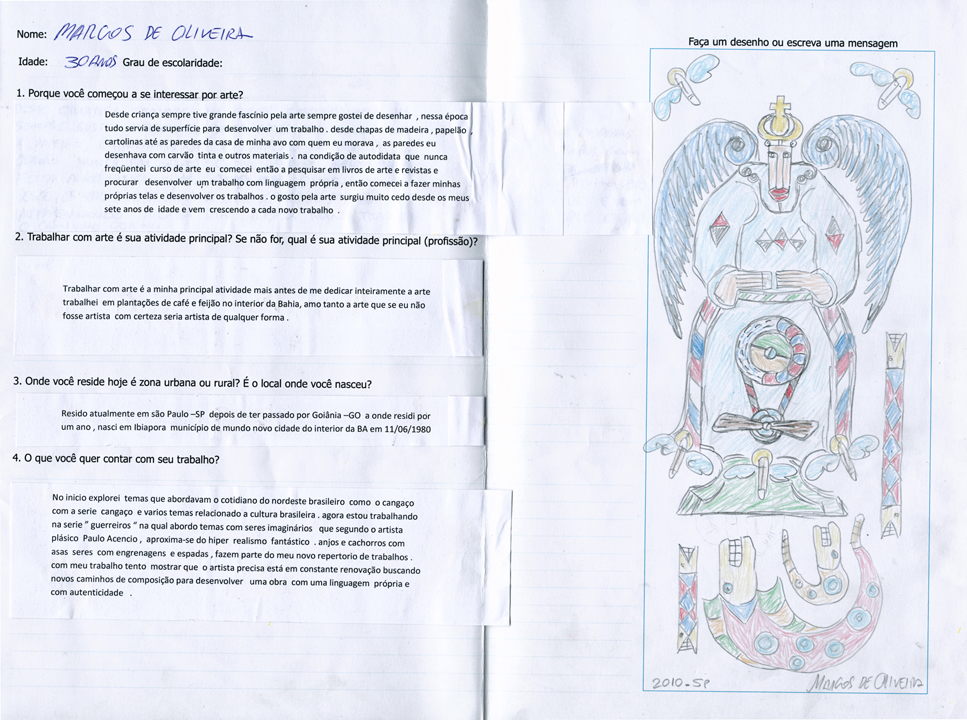 Nome: MARCOS DE OLIVEIRA
Idade: 30 ANOS Grau de escolaridade:
1. Porque você começou a se interessar por arte?
Desde criança sempre tive grande fascínio pela arte sempre gostei de desenhar , nessa época
tudo servia de superfície para desenvolver um trabalho . desde chapas de madeira , papelão
cartolinas até as paredes da casa de minha avo com quem eu morava , as paredes eu
desenhava com carvão tinta e outros materiais . na condição de autodidata que nunca
freqüentei curso de arte eu comecei então a pesquisar em livros de arte e revistas e
procurar desenvolver um trabalho com linguagem própria , então comecei a fazer minhas
próprias telas e desenvolver os trabalhos . o gosto pela arte surgiu muito cedo desde os meus
sete anos de idade e vem crescendo a cada novo trabalho .
2. Trabalhar com arte é sua atividade principal? Se não for, qual é sua atividade principal (profissão)?
Trabalhar com arte é a minha principal atividade mais antes de me dedicar inteiramente a arte
trabalhei em plantações de café e feijão no interior da Bahia, amo tanto a arte que se eu não
fosse artista com certeza seria artista de qualquer forma .
3. Onde você reside hoje é zona urbana ou rural? É o local onde você nasceu?
Resido atualmente em são Paulo –SP depois de ter passado por Goiânia –GO a onde residi por
um ano , nasci em Ibiapora município de mundo novo cidade do interior da BA em 11/06/1980
4. O que você quer contar com seu trabalho?
No inicio explorei temas que abordavam o cotidiano do nordeste brasileiro como o cangaço
com a serie cangaço e varios temas relacionado a cultura brasileira . agora estou trabalhando
na serie " guerreiros " na qual abordo temas com seres imaginários que segundo o artista
plásico Paulo Acencio , aproxima-se do hiper realismo fantástico . anjos e cachorros com
asas seres com engrenagens e espadas , fazem parte do meu novo repertorio de trabalhos .
com meu trabalho tento mostrar que o artista precisa está em constante renovação buscando
novos caminhos de composição para desenvolver uma obra com uma linguagem própria e
com autenticidade .
Faça um desenho ou escreva uma mensagem
2010-SP MARCOS DE OLIVEIRA